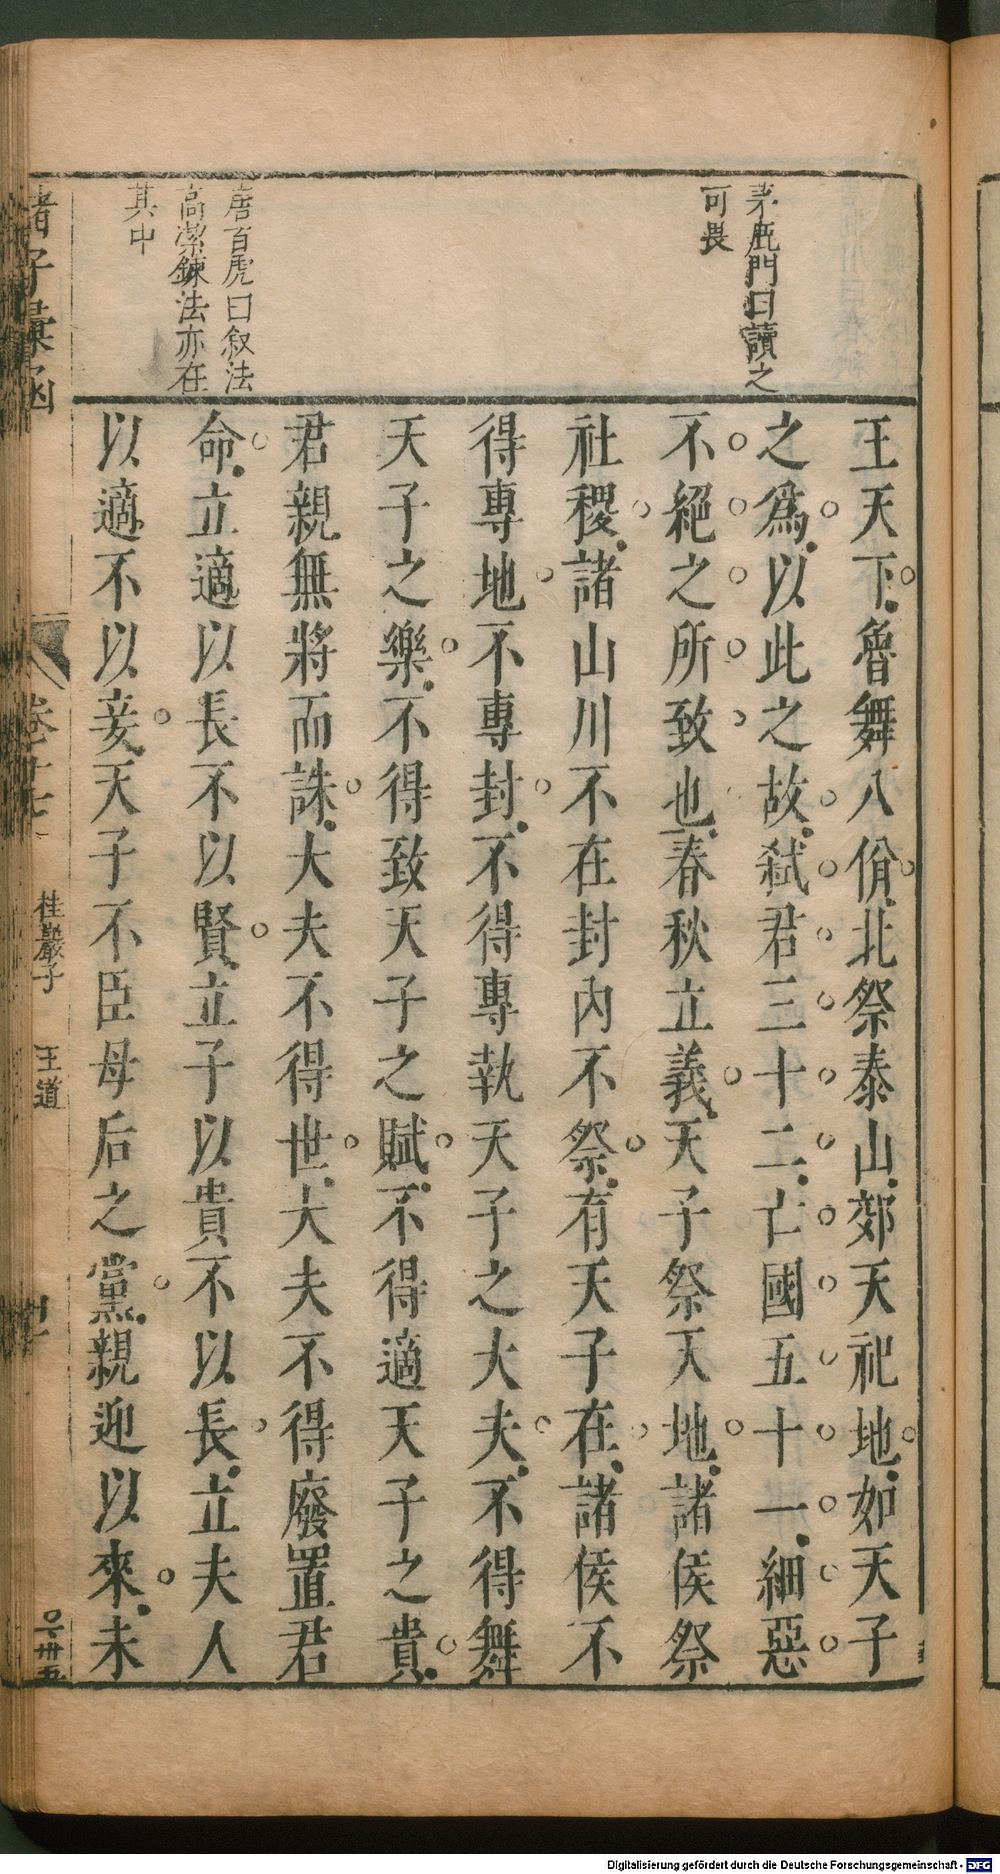 茅鹿門曰讀之
可畏
唐百虎曰叙法
高潔鍊法亦在
其中
王天下魯舞八佾北祭泰山郊天祀地如天子
之爲以此之故弑君三十二亡國五十一細惡
不絕之所致也春秋立義天子祭天地諸侯祭
社稷諸山川不在封內不祭有天子在諸侯不
得專地不專封不得專執天子之大夫不得舞
天子之樂不得致天子之賦不得適天子之貴
君親無將而誅大夫不得世大夫不得廢置君
命立適以長不以賢立子以貴不以長立夫人
以適不以妾天子不臣母后之黨親迎以來未
諸子彙函
卷十七
桂巖子
王道
Digitalisierung gefördert durch die Deutsche Forschungsgemeinschaft - DFG